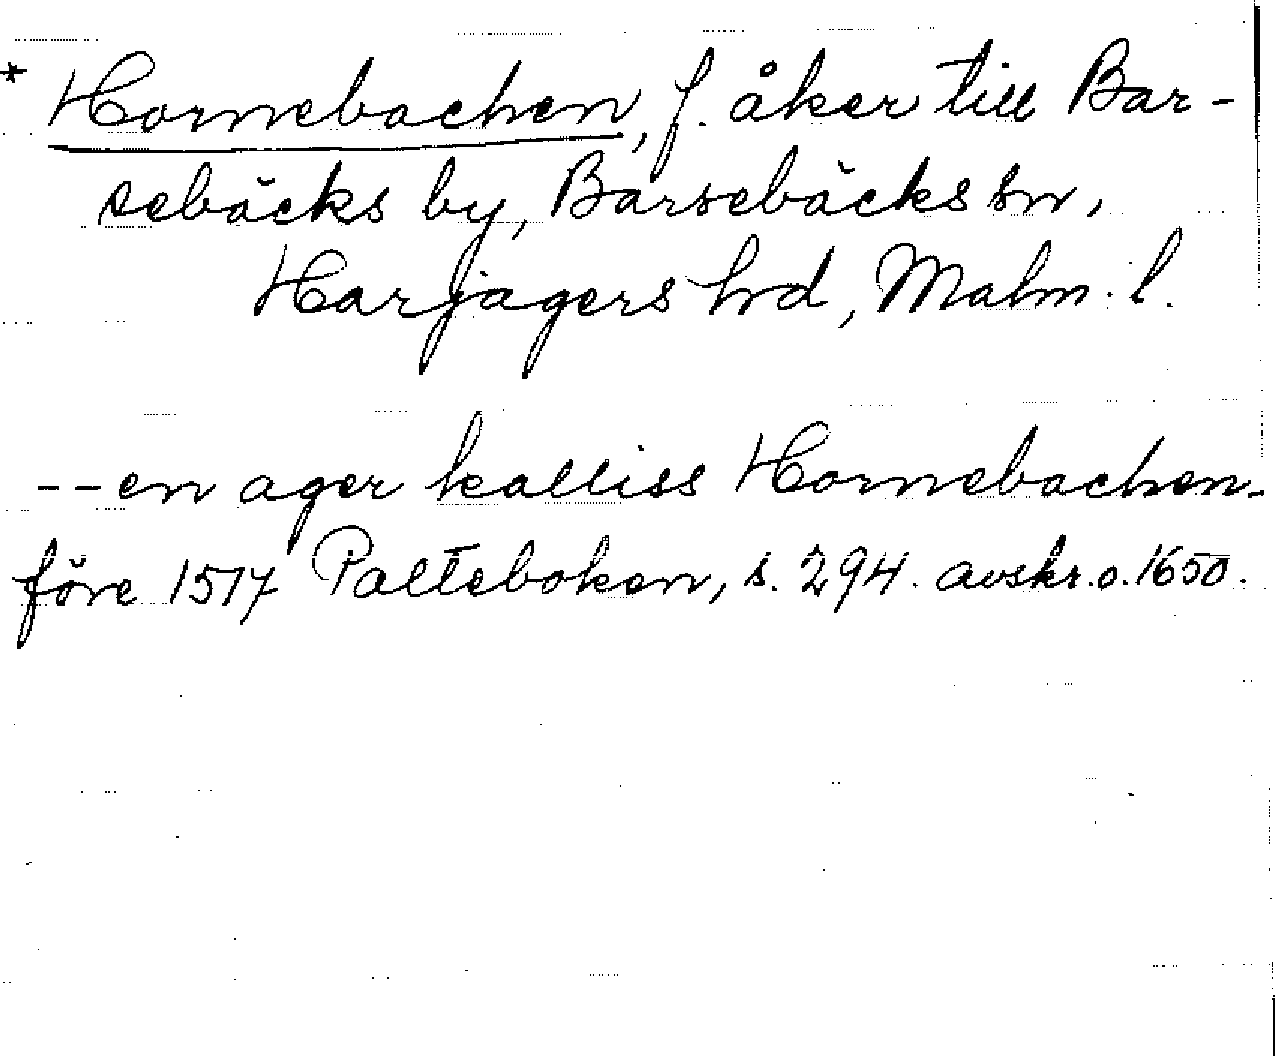 * Hornebachen, f. åker till Bar-
sebäcks by, Barsebäcks sn,
Harjagers hd, Malm. l.
-- en ager kalliss Hornebachen -
före 1517 Palteboken, s. 294. avskr. o. 1650.